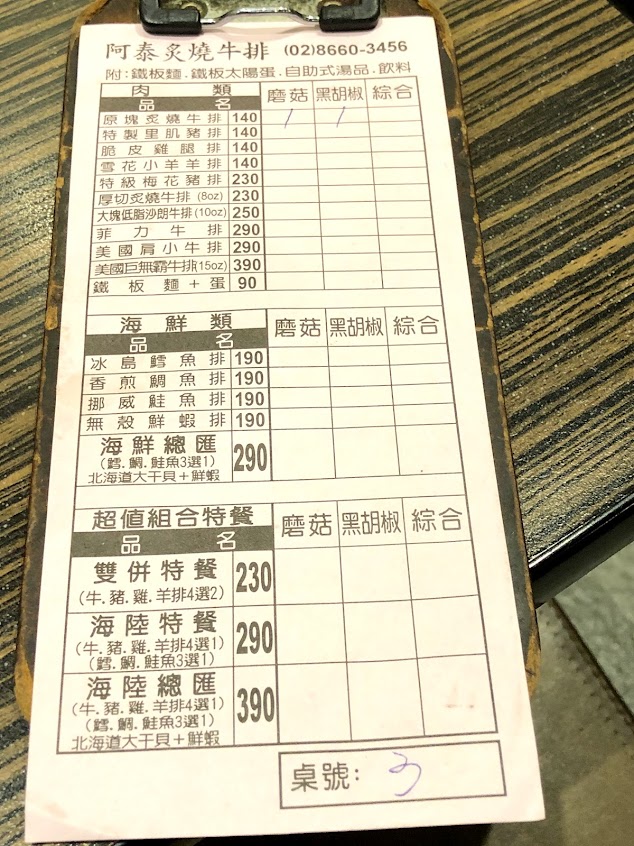 阿泰炙燒牛排 (02)8660-3456
附:鐵板麵.鐵板太陽蛋.自助式湯品.飲料
肉類 磨菇 黑胡椒 綜合
品名
原塊炙燒牛排 140 1 1
特製里肌豬排 140
脆皮雞腿排 140
雪花小羊羊排 140
特級梅花豬排 230
厚切炙燒牛排(8oz) 230
大塊低脂沙朗牛排(10oz) 250
菲力牛排 290
美國肩小牛排 290
美國巨無霸牛排(15oz) 390
鐵板麵+蛋 90
海鮮類 磨菇 黑胡椒 綜合
品名
冰島鱈魚排 190
香煎鯛魚排 190
挪威鮭魚排 190
無殼鮮蝦排 190
海鮮總匯 290
(鱈.鯛.鮭魚3選1)
北海道大干貝+鮮蝦
超值組合特餐 磨菇 黑胡椒 綜合
品名
雙併特餐 230
(牛.豬.雞.羊排4選2)
海陸特餐 290
(牛.豬.雞.羊排4選1)
(鱈.鯛.鮭魚3選1)
海陸總匯 390
(牛.豬.雞.羊排4選1)
(鱈.鯛.鮭魚3選1)
北海道大干貝+鮮蝦
桌號: